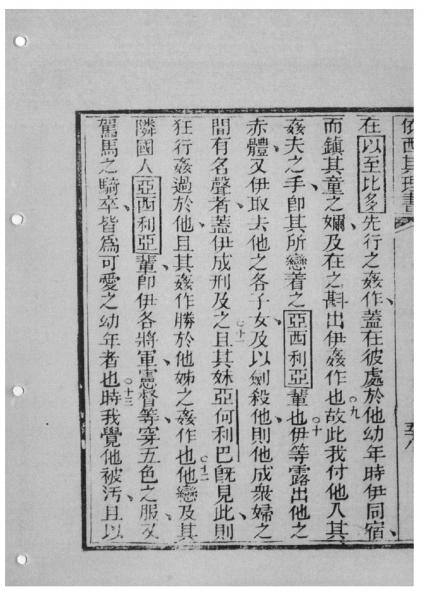 依西其理書
在以至比多先行之姦作蓋在彼處於他幼年時伊同宿
而鎮其童之嬭及在之斟出伊姦作也○九故此我付他入其
姦夫之手卽其所戀着之亞西利亞輩也○十伊等露出他之
赤體又伊取去他之各子女及以劍殺他則他成衆婦之
間有名聲者蓋伊成刑及之○十一且其妹亞何利巴旣見此則
狂行姦過於他且其姦作勝於他姊之姦作也○十二他戀及其
隣國人亞西利亞輩卽伊各將軍憲督等穿五色之服又
駕馬之騎卒皆爲可愛之幼年者也○十三時我覺他被汚且以